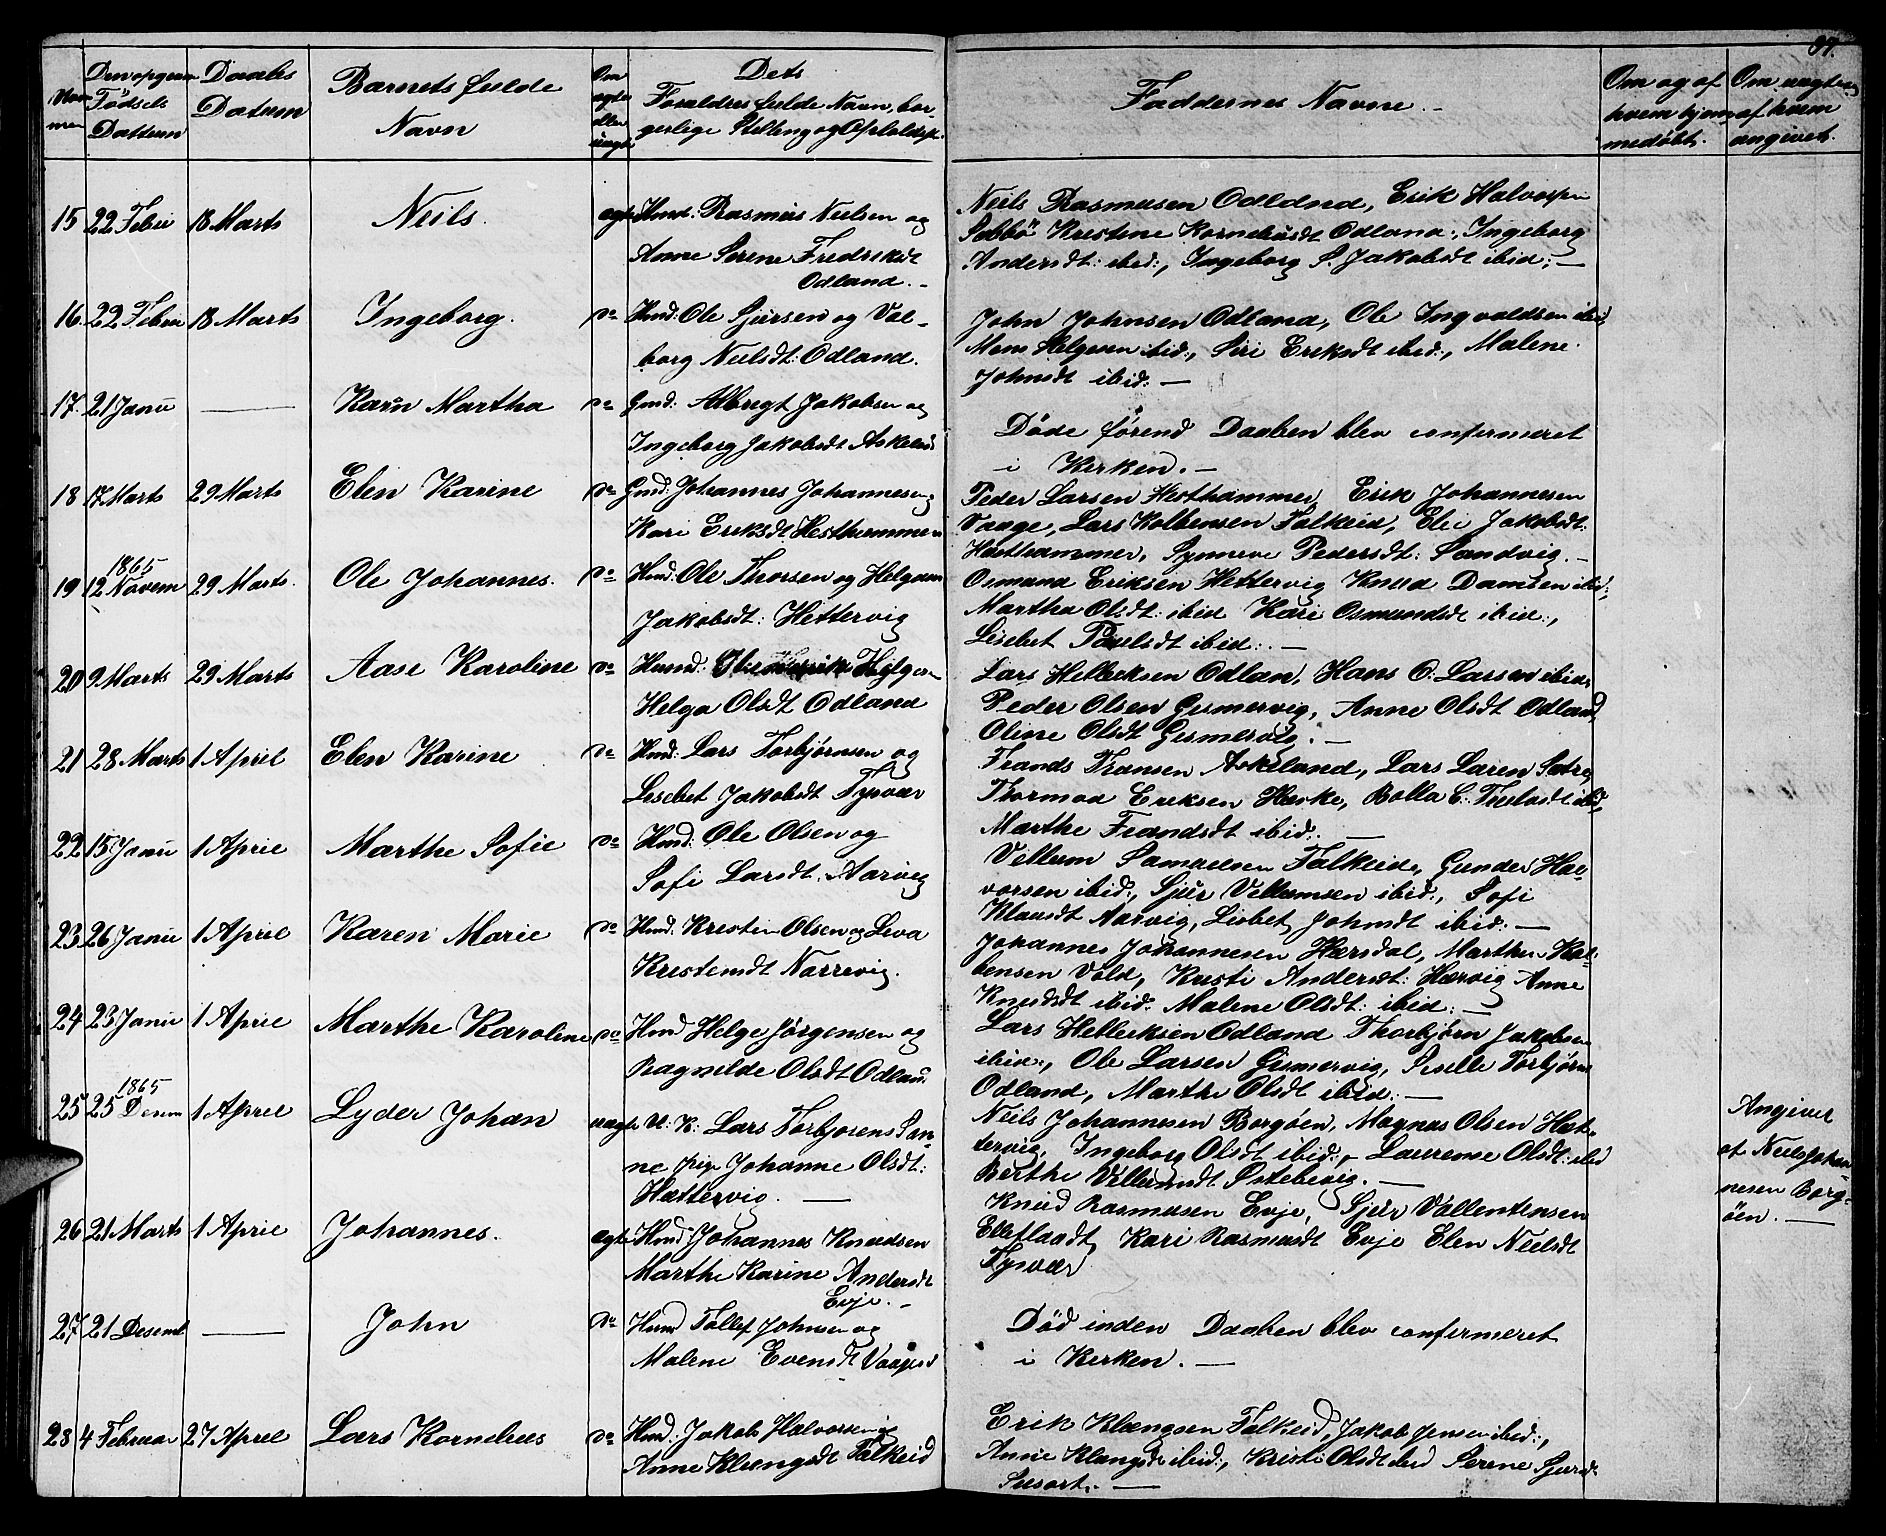 97.
Num
mer
Den opgivne
Fødsels
Dattum
Daabs
Datum
Barnets fulde
Navn
Om
ægte
eller
uægte
Dets
Forældres fulde Navn, bor-
gerlige Stilling og Opholdsst.
Faddernes Navne.
Om og af
hvem hjem-
medøbt.
Om uægte og
af hvem
angivet.
15 22 Febru 18 Marts Neils. ægte Hmd: Rasmus Nielsen og
Anne Serene Fredriksdt
Odland.
Neils Rasmusen Odland, Erik Halvorsen
Sebbø Kristine Korneliusdt Odland, Ingeborg
Andersdt: ibid:, Ingeborg S. Jakobsdt ibid:
16. 22 Febru 18 Marts Ingeborg. do Hmd: Ole Sjursen og Val-
borg Nielsdt: Odland.
John Johnsen Odland, Ole Ingvaldsen ibid:
Mons Helgesen ibid:, Siri Eriksdt ibid:, Malene
Johnsdt ibid.
17. 21 Janu — Karn Martha do Gmd: Albregt Jakobsen og
Ingeborg Jakobsdt Askeland
Døde førend Daaben blev confirmeret
i Kerken.
18 17 Marts 29 Marts Elen Karine do Gmd: Johannes Johannesen og
Kari Eriksdt Hesthammer
Peder Larsen Hesthammer, Erik Johannesen
Vaage, Lars Kolbensen Falkeid, Eli Jakobsdt:
Hesthammer, Synneve Pedersdt: Sandvig.
19 1865
12 Novem 29 Marts. Ole Johannes. do Hmd: Ole Thorsen og Helga
Jakobsdt: Hettervig
Osmund Eriksen Hettervig Knud Damsen ibid:,
Martha Olsdt: ibid Kari Osmundsdt ibid:,
Lisebet Poulsdt ibid:.
20 9 Marts 29 Marts Aase Karoline do Hmd: Helgesen
Helga Olsdt Odland
Lars Helleksen Odlan, Hans O. Larsen ibid,
Peder Olsen Gismervig, Anne Olsdt Odland
Oline Olsdt Gismervig.
21 28 Marts 1 April Elen Karine do Hmd: Lars Torbjørnsen og
Lisebet Jakobsdt Tysvær
Frands Fransen Askeland, Lars Larsen Sætre,
Thormod Eriksen Haske, Bolla C. ibid,
Marthe Frandsdt ibid:
22 15 Janu 1 April Marthe Sofie do Hmd: Ole Olsen og
Sofi Larsdt. Aarvig
Vellum Samuelsen Falkeide, Gunder Hal-
vorsen ibid:, Sjur Vellumsen ibid:, Sofi
Klausdt Aarvig, Lisbet Johnsdt ibid:
23 26 Janu 1 April Karen Marie do Hmd: Kristen Olsen og Leva
Krestensdt Narrevig.
Johannes Johannesen Hærsdal, Marthin Kol-
bensen Vold, Kristi Andersdt: Hærvig Anne
Knudsdt ibid. Malene Olsdt: ibid:
24 23 Janu 1 April Marthe Karoline do Hmd Helge Jørgensen og
Ragnilde Olsdt Odland
Lars Helleksen Odland Thorbjørn Jakobsen
ibid:, Ole Larsen Gismervig, Siselle Torbjørn
Odland, Marthe Olsdt ibid:
25 1865
25 Desem 1 April Lyder Johan uægte U: K: Lars Torbjosens Søn-
ne pige Johanne Olsdt:
Hættervig.
Neils Johannesen Borgøen, Magnus Olsen Het-
tervig, Ingeborg Olsdt ibid:, Laurense Olsdt: ibid
Berthe Vellumsdt Østebøvig.
Angiver
af Neils Johan
nesen Borg-
øen.
26 21 Marts 1 April Johannes. ægte Hmd Johannes Knudsen
Marthe Karine Andersdt
Evje.
Knud Rasmusen Evje, Sjur Vallentinsen
Eltflaadt, Kari Rasmusdt Evje Elen Nielsdt
Tysvær
27 21 Desemb — John do Hmd Tollef Johnsen og
Malene Evensdt Vaage
Død inden Daaben blev confirmeret
i Kerken.
28 4 Februar 27 April Lars Kornelius do Hmd: Jakob Halvorsen og
Anne Klængsdt Falkeid
Erik Klængsen Falkeid, Jakob Jensen ibid:,
Anne Klængsdt ibid:, Kristi Olsdt ibid Serene Sjursdt
Susort.